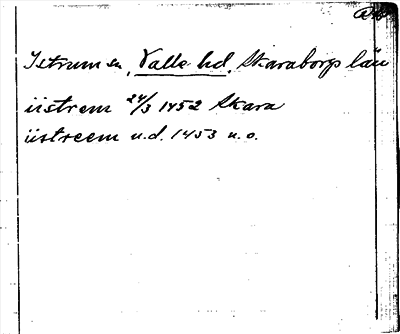 Istrum sn, Valle hd, Skaraborgs län
üstrem 24/3 1452 Skara
üstreem u.d. 1453 u.o.